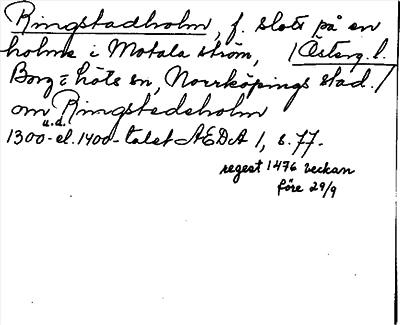 Ringstadholm, f. slott på en
holme i Motala ström, /Österg. l.
Borg o. Löts sn, Norrköpings stad./
om Ringstedeholm
u.d.
1300- el. 1400-talet AEDA 1, s. 77.
regest 1476 veckan
före 29/9